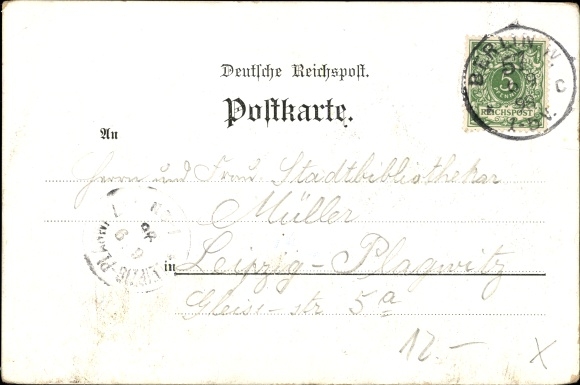 Deutsche Reichspost.
Postkarte.
An
Herrn und Frau Stadtbibliothekar
Müller
in Leipzig-Plagwitz
Gleise-str 5a
12.-
X
BERLIN W.
5
PFENNIG
REICHSPOST
LEIPZIG-PLAGWITZ